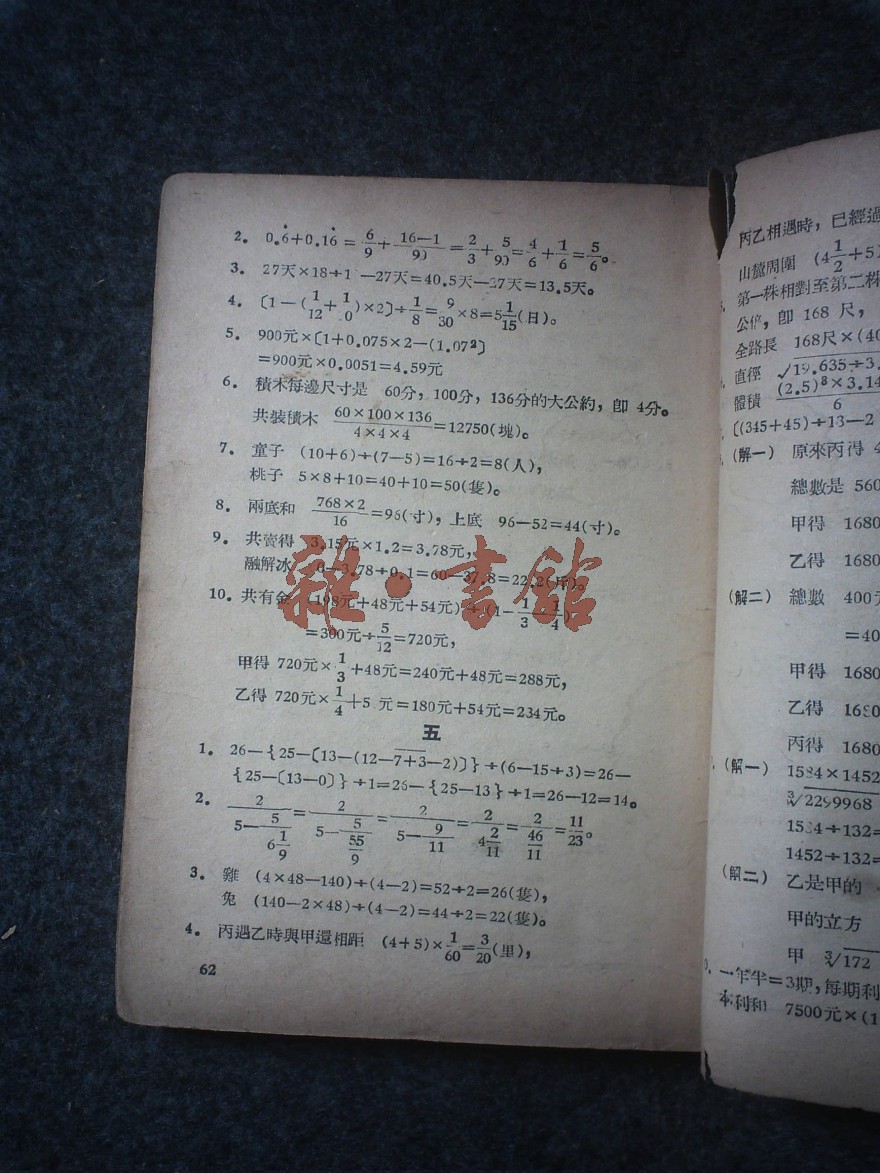 2. 0.6̇+0.16̇ = 6/9 + 16-1/90 = 2/3 + 5/90 = 4/6 + 1/6 = 5/6。
3. 27天×18÷1 -27天=40.5天-27天=13.5天。
4. 〔1-(1/12+1/ 0)×2〕÷1/8=9/30×8=5 1/15(日)。
5. 900元×〔1+0.075×2-(1.07²〕
=900元×0.0051=4.59元
6. 積木每邊尺寸是 60分,100分,136分的大公約,卽 4分。
共裝積木 60×100×136/4×4×4=12750(塊)。
7. 童子 (10+6)÷(7-5)=16÷2=8(人),
桃子 5×8+10=40+10=50(隻)。
8. 兩底和 768×2/16=96(寸),上底 96-52=44(寸)。
9. 共賣得 3.15元×1.2=3.78元,
融解冰 6-3.78÷0.1=60-37.8=22.2(斤)。
10. 共有金 (198元+48元+54元)÷(1-1/3-1/4)
=300元÷5/12=720元,
甲得 720元×1/3+48元=240元+48元=288元,
乙得 720元×1/4+5 元=180元+54元=234元。
五
1. 26-{25-〔13-(12-7+3-2)〕}÷(6-15÷3)=26-
{25-〔13-0〕}÷1=26-{25-13}÷1=26-12=14。
2. 2/(5-5/(6 1/9))=2/(5-5/(55/9))=2/(5-9/11)=2/(4 2/11)=2/(46/11)=11/23。
3. 雞 (4×48-140)÷(4-2)=52÷2=26(隻),
兔 (140-2×48)÷(4-2)=44÷2=22(隻)。
4. 丙遇乙時與甲還相距 (4+5)×1/60=3/20(里),
62
雜·書館
丙乙相遇時,已經過
山麓周圍 (4 1/2+5)
第一株相對至第二株
公倍,卽 168 尺,
全路長 168尺×(40
直徑 √19.635÷3.
體積 (2.5)³×3.14/6
〔(345+45)÷13-2
(解一) 原來丙得 4
總數是 560
甲得 1680
乙得 1680
(解二) 總數 400元
=40
甲得 1680
乙得 1680
丙得 1680
(解一) 1584×1452
∛2299968
15 4÷132=
1452÷132=
(解二) 乙是甲的
甲的立方
甲 ∛172
一年半=3期,每期利
本利和 7500元×(1